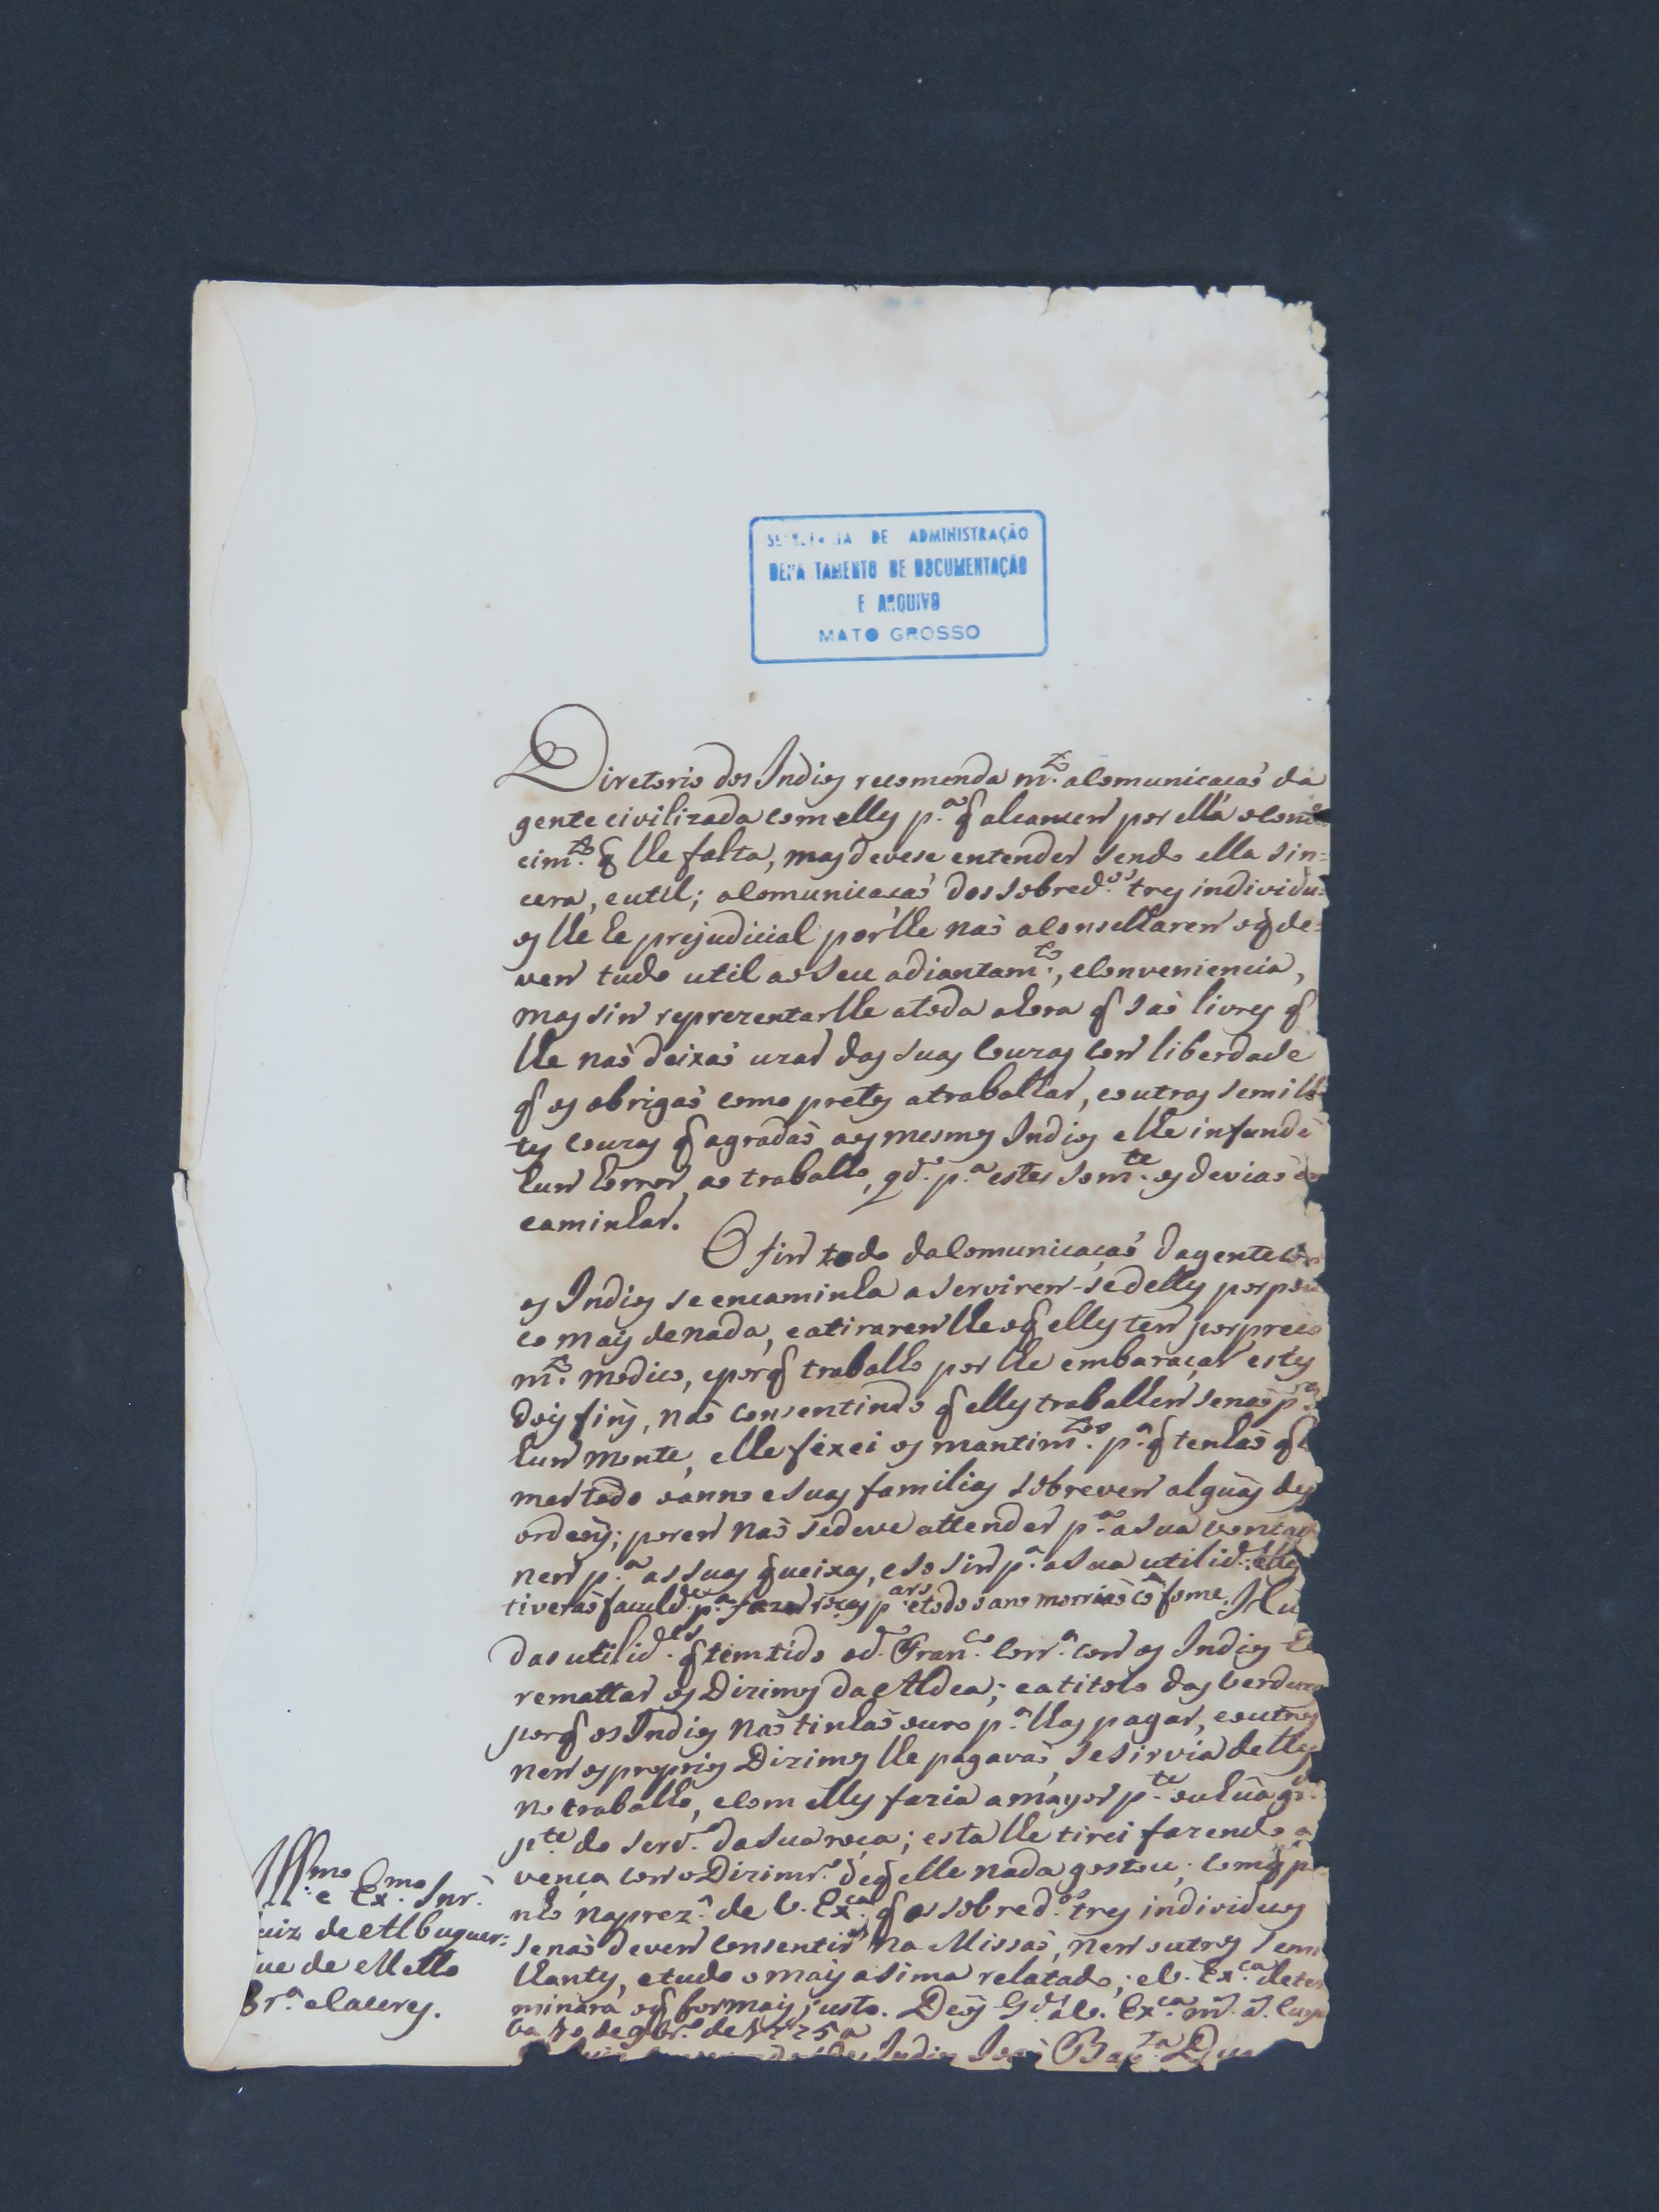 SECRETARIA DE ADMINISTRAÇÃO
DEPARTAMENTO DE DOCUMENTAÇÃO
E ARQUIVO
MATO GROSSO
Diretorio dos Indios recomenda m.to a comunicacaõ da
gente civilizada com elles p.a q̃ alcancem por ella o conhe
cim.to q̃ lhe falta, mas devese entender sendo ella sin=
cera, e util; a comunicacaõ dos sobred.os tres individu=
os lhe he prejudicial por lhe naõ aconselharem o q̃ de=
vem tudo util ao seu adiantam.to, e conveniencia,
mas sim reprezentarlhe a toda a hora q̃ saõ livres q̃
lhe naõ deixaõ uzar das suas couzas com liberdade
q̃ os obrigaõ como pretos a trabalhar, e outras semilh
tes couzas q̃ agradaõ aos mesmos Indios e lhe infundẽ
hum horror ao trabalho, qd.o p.a estes som.te os deviaõ en
caminhar.
O fim todo da comunicaçaõ da gente com
os Indios se encaminha a servirem-se delles por pou
co mais de nada, e a tirarem lhe o q̃ elles tem por preco
m.to modico, e porq̃ trabalho por lhe embaraçar estes
dois fins, naõ consentindo q̃ elles trabalhem senaõ p.a
hum monte, e lhe fexei os mantim.tos p.a q̃ tenhaõ q̃ co
mer todo o anno e suas familias sobrevem alguãs des
ordens; porem naõ se deve attender p.a a sua vontad
nem p.a as suas queixas, e so sim p.a a sua utilid.e elles
tiveraõ faculd.e p.a fazer roças p.ares e todo o ano morriaõ cõ fome. Hu
das utilid.es q̃ tem tido o d.o Fran.co Corr.a com os Indios he
remattar os Dizimos da Aldea; e a titolo das verduras
porq̃ os Indios naõ tinhaõ ouro p.a lhas pagar, e outros
nem os proprios Dizimos lhe pagavaõ, se sirvia delles
no trabalho, e com elles fazia a mayor p.te ou huã gr.de
p.te do serv.o da sua roça; esta lhe tirei fazendo a
vença com o Dizimr.o de q̃ elle nada gostou; com q̃ po
nho na prez.a de V. Ex.ca q̃ os sobred.os tres individuos
se naõ devem consentir na Missaõ, nem outros semi
lhantes, e tudo o mais asima relatado; e V. Ex.ca deter
minará o q̃ for mais justo. Deõs G.de a V. Ex.ca m.s a.s Cuya
ba 10 de 9br.o de 1775 a
Indios Joaõ Bap.ta Dua
Ill.mo e Ex.mo Snr.
Luiz de Albuquer=
que de Mello
Pr.a e Caceres.